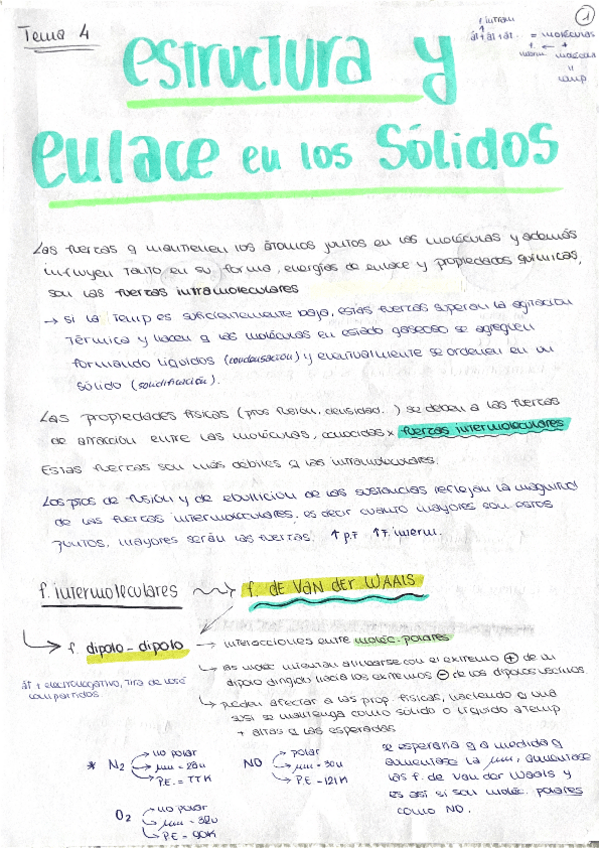 Tema 4
1
f. intram
át + át + át... = moléculas
estructura y
enlace en los Sólidos
Las fuerzas q mantienen los átomos juntos en las moléculas y además
influyen tanto en su forma, energías de enlace y propiedades químicas,
son las fuerzas intramoleculares
→ si la Temp es suficientemente baja, estas fuerzas superan la agitación
térmica y hacen q las moléculas en estado gaseoso se agreguen
formando líquidos (condensación) y eventualmente se ordenen en un
sólido (solidificación).
Las propiedades físicas (ptos fusión, densidad..) se deben a las fuerzas
de atracción entre las moléculas, conocidas x fuerzas intermoleculares
Estas fuerzas son más débiles q las intramoleculares.
Los ptos de fusión y de ebullición de las sustancias reflejan la magnitud
de las fuerzas intermoleculares, es decir cuanto mayores son estos
puntos, mayores serán las fuerzas. ↑ p.f ↑ f. interm.
f. intermoleculares f. DE VAN DER WAALS
f. dipolo-dipolo → interacciones entre moléc. polares
→ as moléc intentan alinearse con el extremo ⊕ de un
dipolo dirigido hacia los extremos ⊖ de los dipolos vecinos.
át + electronegativo, tira de los e⁻
compartidos.
→ pueden afectar a las prop. físicas, haciendo q una
sust se mantenga como sólido o líquido a temp
+ altas q las esperadas
* N₂ → no polar
→ μm = 28u
→ P.E. = 77K
NO → polar
→ μm = 30u
→ P.E = 121K
se esperaría q a medida q
aumentase la μm, aumentase
las f. de Van der Waals y
es así si son moléc. polares
como NO.
O₂ → no polar
→ μm = 32u
→ P.E = 90K